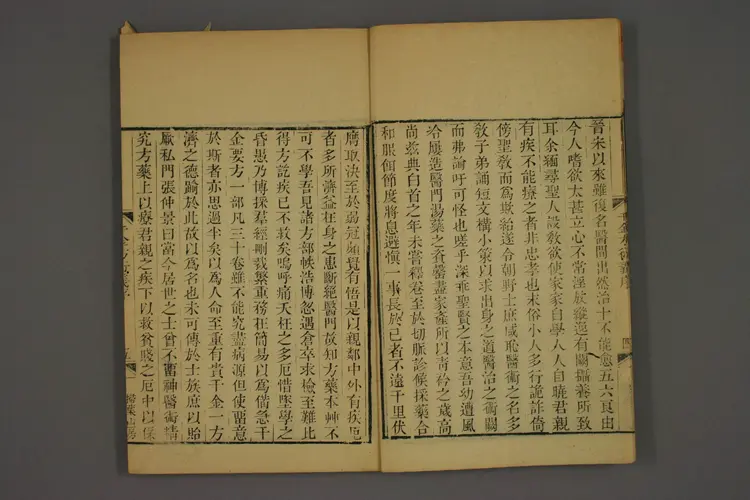 晉宋以來雖復名醫間出然治十不能愈五六良由
今人嗜欲太甚立心不常淫放縱逸有闕攝養所致
耳余緬尋聖人設敎欲使家家自學人人自曉君親
有疾不能療之者非忠孝也末俗小人多行詭詐倚
傍聖敎而爲欺紿遂令朝野士庶咸恥醫術之名多
敎子弟誦短文構小策以求出身之道醫治之術闕
而弗論吁可怪也嗟乎深乖聖賢之本意吾幼遭風
冷屢造醫門湯藥之資罄盡家產所以靑衿之歲高
尚兹典白首之年未嘗釋卷至於切脈診候採藥合
和服餌節度將息避愼一事長於己者不遠千里伏
膺取決至於弱冠頗覺有悟是以親鄰中外有疾厄
者多所濟益在身之患斷絕醫門故知方藥本艸不
可不學吾見諸方部帙浩博忽遇倉卒求檢至難比
得方訖疾已不救矣嗚呼痛夭枉之多厄惜墜學之
昏愚乃博採羣經刪裁繁重務在簡易以爲備急千
金要方一部凡三十卷雖不能究盡病源但使畱意
於斯者亦思過半矣以爲人命至重有貴千金一方
濟之德踰於此故以爲名也未可傳於士族庶以貽
厥私門張仲景曰當今居世之士曾不畱神醫術精
究方藥上以療君親之疾下以救貧賤之厄中以保
掃葉山房